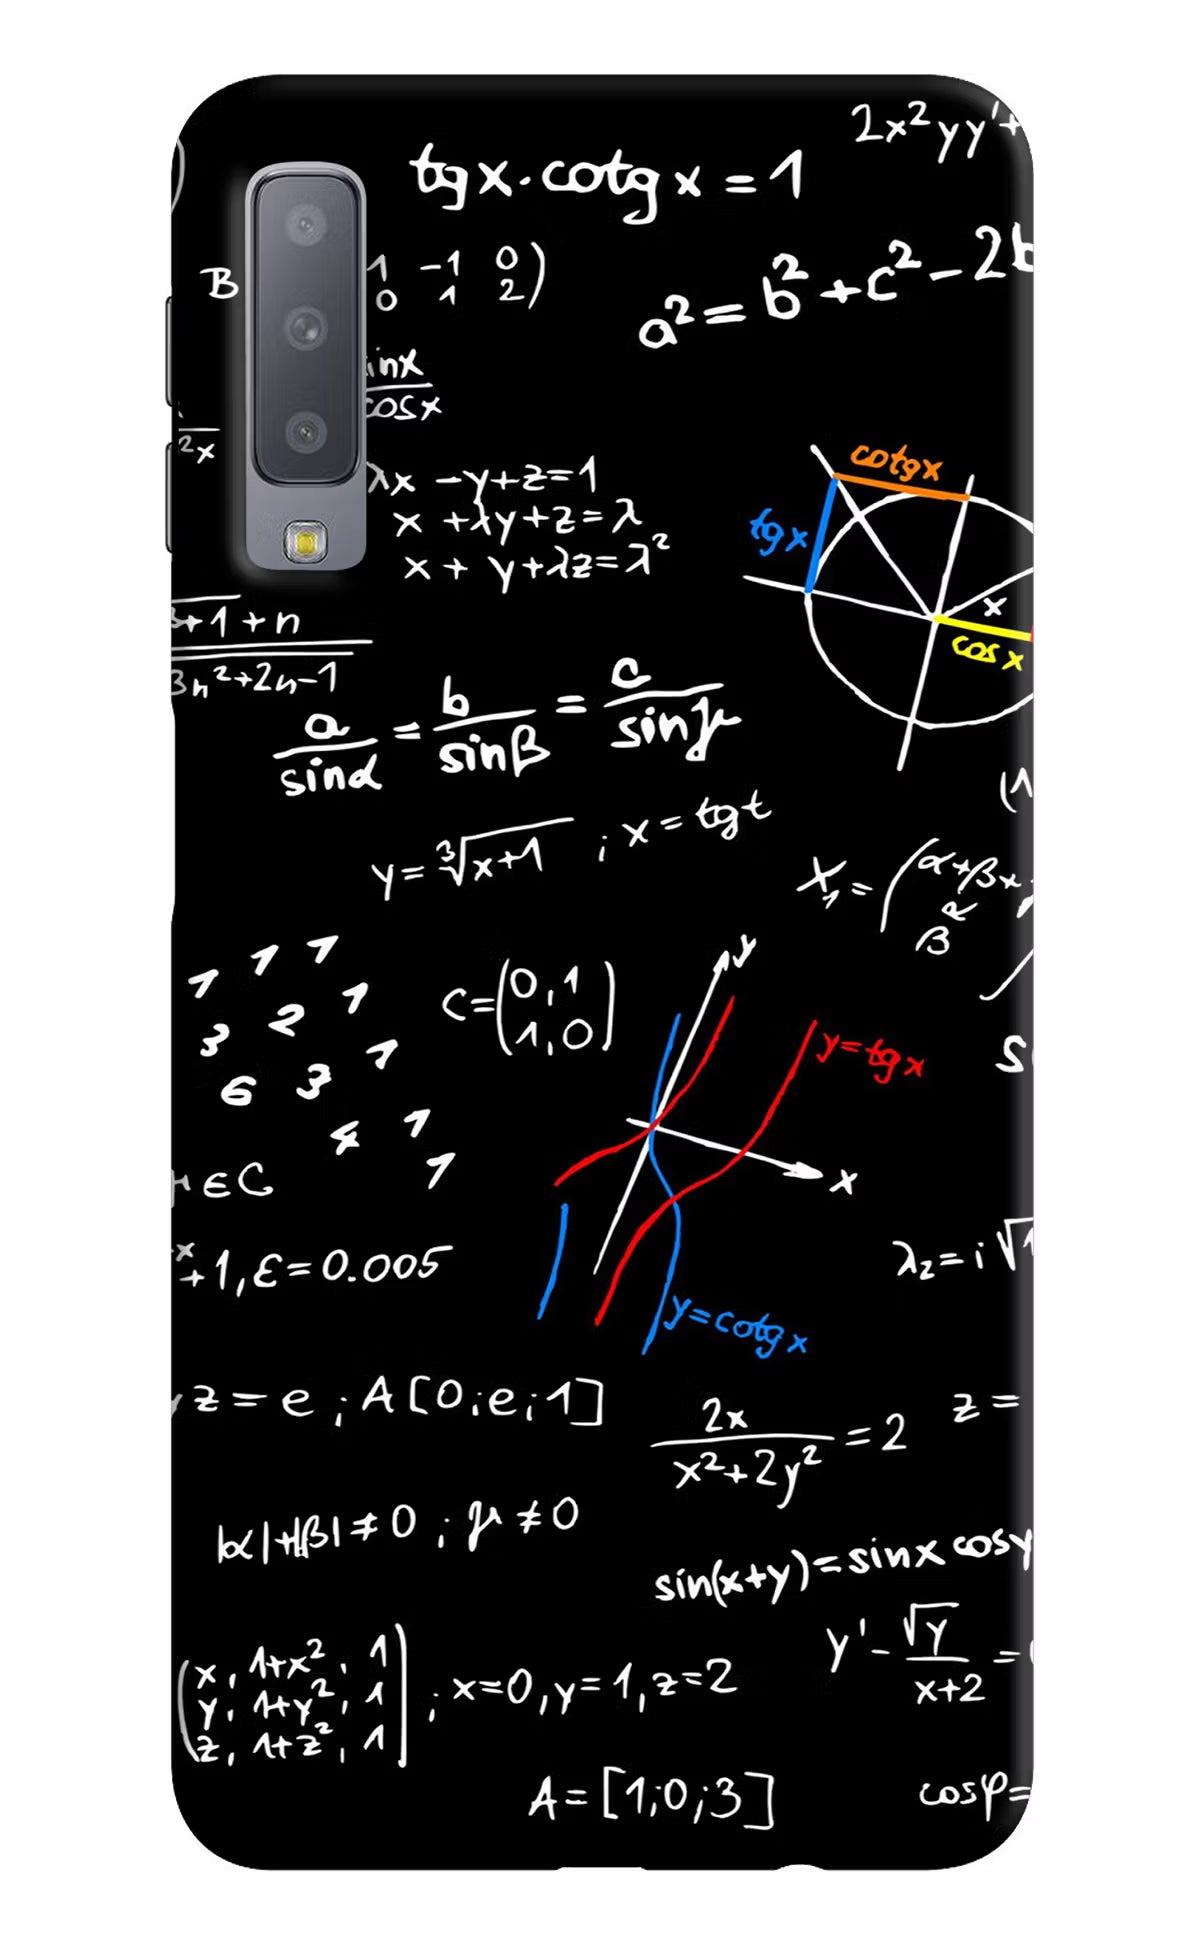 2x²yy'+
tgx·cotgx = 1
B
1 -1 0
0 1 2)
a² = b² + c² - 2b
inx
cosx
2x
λx - y + z = 1
x + λy + z = λ
x + y + λz = λ²
cotgx
tgx
x
cosx
3+1 + n
3n²+2n-1
a/sinα = b/sinβ = c/sinγ
y = ∛x+1 ; x = tgt
X₁ = (α+βx
β
1 1 1
3 2 1
6 3 1
4 1
1
C = (0,1
1,0)
y
y=tgx
x
y=cotgx
∈C
+1, ε = 0.005
λ₂ = i√
z = e ; A[0;e;1]
2x/x²+2y² = 2
z =
|α|+|β| ≠ 0 ; μ ≠ 0
sin(x+y) = sinx cosy
y' - √y/x+2 =
(x, 1+x², 1
y, 1+y², 1
z, 1+z², 1) ; x=0, y=1, z=2
A = [1;0;3]
cosφ=